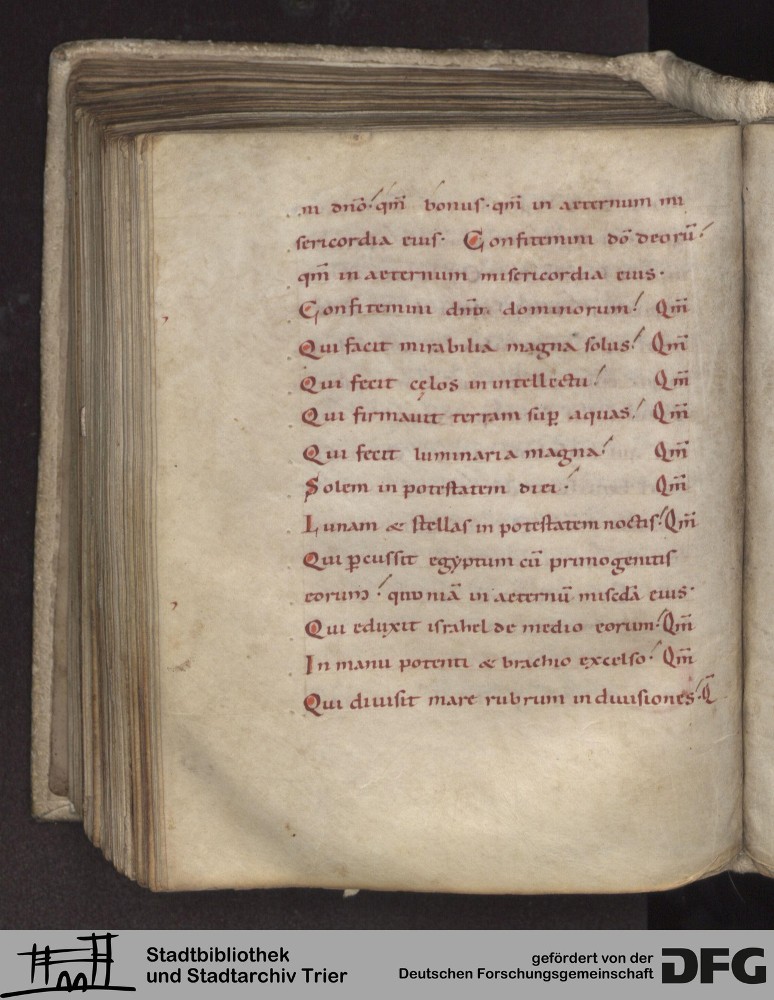 ni dn̄o. qm̄ bonus. qm̄ in aeternum mi
sericordia eius. Confitemini dō deorū.
qm̄ in aeternum misericordia eius.
Confitemini dn̄o dominorum. Qm̄
Qui facit mirabilia magna solus. Qm̄
Qui fecit cęlos in intellectu. Qm̄
Qui firmauit terram sup̄ aquas. Qm̄
Qui fecit luminaria magna. Qm̄
Solem in potestatem diei. Qm̄
Lunam & stellas in potestatem noctis. Qm̄
Qui ꝑcussit egyptum cū primogenitis
eorum. quoniā in aeternū misc̄dā eius.
Qui eduxit israhel de medio eorum. Qm̄
In manu potenti & brachio excelso. Qm̄
Qui diuisit mare rubrum in diuisiones. Q̄
Stadtbibliothek
und Stadtarchiv Trier
gefördert von der
Deutschen Forschungsgemeinschaft
DFG